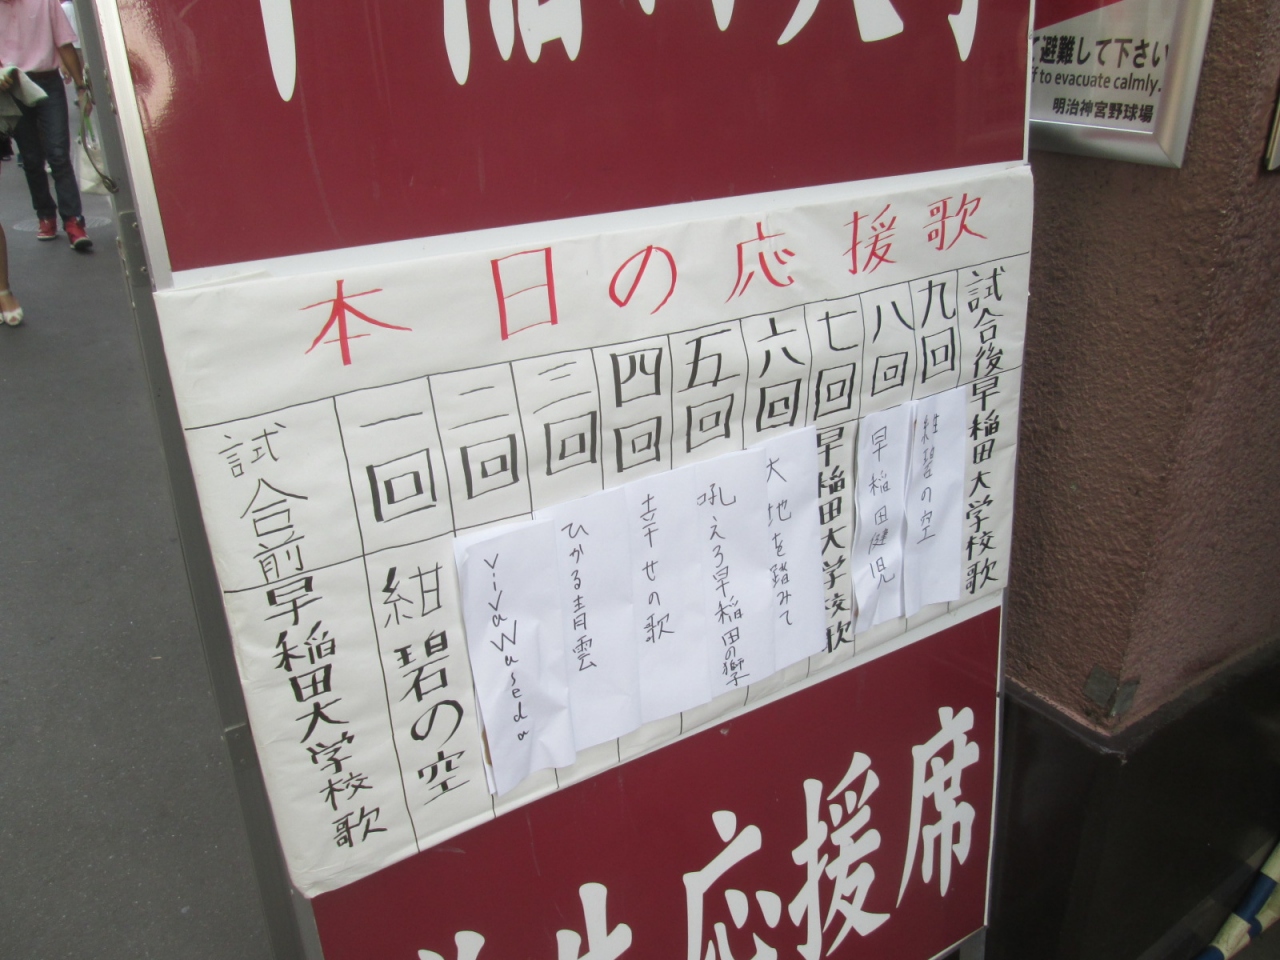 稲田大学
て避難して下さい
to evacuate calmly.
明治神宮野球場
本日の応援歌
試合前
早稲田大学校歌
一回
紺碧の空
二回
Viva Waseda
三回
ひかる青雲
四回
幸せの歌
五回
吼えろ早稲田の獅子
六回
大地を踏みて
七回
早稲田大学校歌
八回
早稲田健児
九回
紺碧の空
試合後
早稲田大学校歌
学生応援席